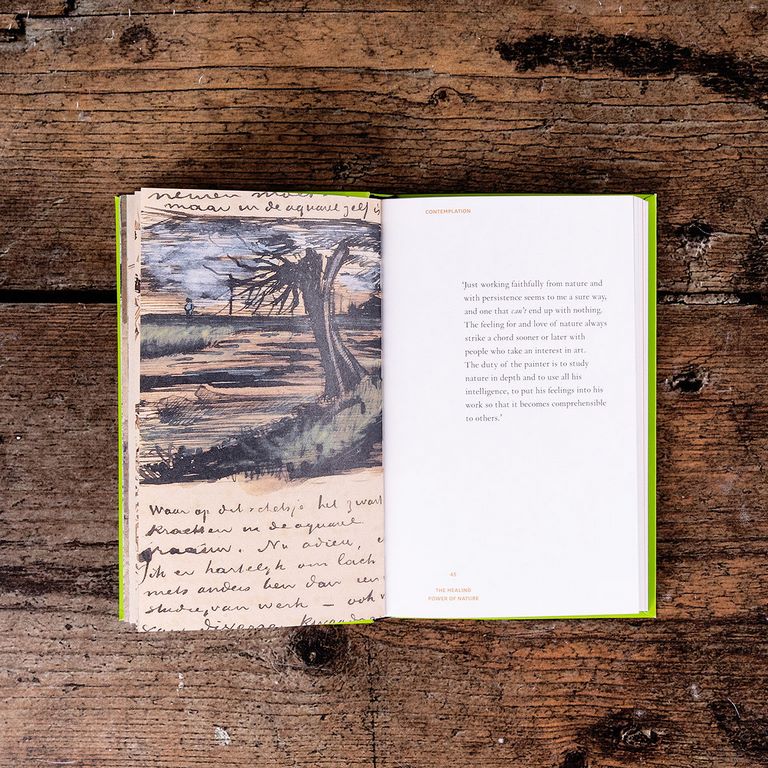 nemen
maar in de aquarel zelf is
Waar op dit schetsje het zwart
Krassen in de aquarel
Nu adieu,
ik er hartelyk om lach
mets anders ben dan een
studie van werk — ook
CONTEMPLATION
'Just working faithfully from nature and
with persistence seems to me a sure way,
and one that can't end up with nothing.
The feeling for and love of nature always
strike a chord sooner or later with
people who take an interest in art.
The duty of the painter is to study
nature in depth and to use all his
intelligence, to put his feelings into his
work so that it becomes comprehensible
to others.'
45
THE HEALING
POWER OF NATURE